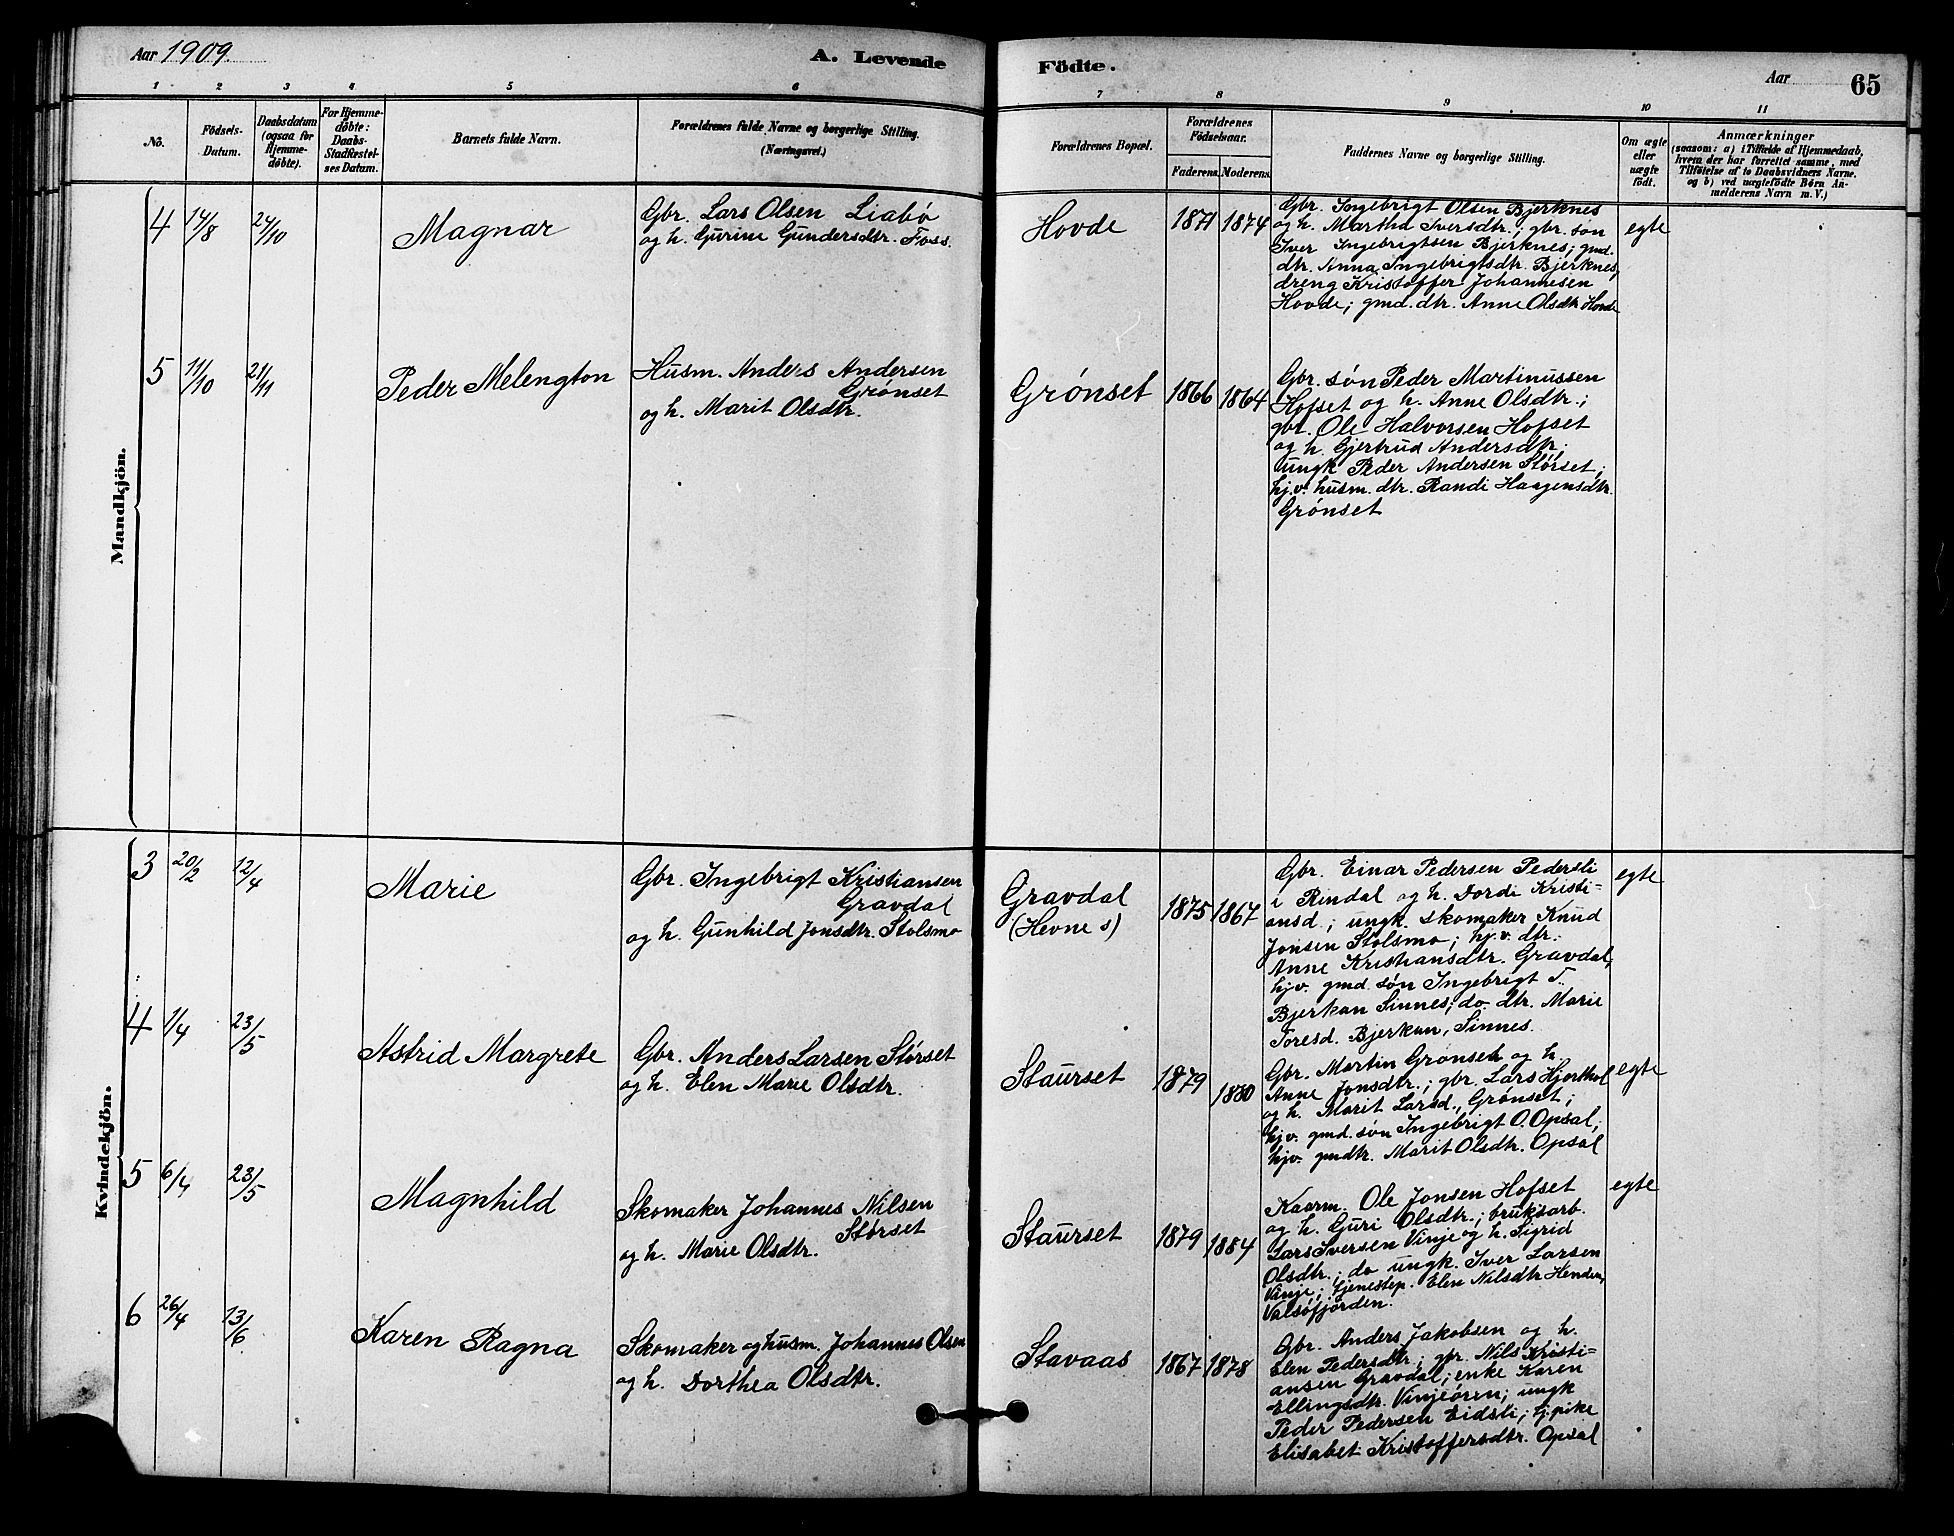 Aar 1909. A. Levende Födte. Aar 65
1 2 3 4 5 6 7 8 9 10 11
No.
Födsels-
Datum.
Daabsdatum
(ogsaa for
Hjemme-
döbte).
For Hjemme-
döbte:
Daabs-
Stadfæstel-
ses Datum.
Barnets fulde Navn.
Forældrenes fulde Navne og borgerlige Stilling.
(Næringsvei.)
Forældrenes Bopæl.
Forældrenes
Födselsaar.
Faderens. Moderens.
Faddernes Navne og borgerlige Stilling.
Om ægte
eller
uægte
födt.
Anmærkninger
(saasom: a) i Tilfælde af Hjemmedaab,
hvem der har forrettet samme, med
Tilföielse af to Daabsvidners Navne.
og b) ved uægtefödte Börn An-
melderens Navn m. V.)
Mandkjön.
4 14/8 24/10 Magnar
Gbr. Lars Olsen Liabö
og h. Gurine Gundersdtr. Foss.
Hovde 1871 1874
Gbr. Ingebrigt Olsen Bjerknes
og h. Martha Iversdtr.; gbr. søn
Iver Ingebrigtsen Bjerknes; gmd.
dtr. Anna Ingebrigtsdtr. Bjerknes,
dreng Kristoffer Johannesen
Hovde; gmd. dtr. Anne Olsdtr Hovde
egte
5 11/10 21/11 Peder Melengton
Husm. Anders Andersen
Grønset
og h. Marit Olsdtr.
Grønset 1866 1864
Gbr. søn Peder Martinussen
Hofset og h. Anne Olsdtr.;
gbr. Ole Halvorsen Hofset
og h. Gjertrud Andersdtr.
ungk Peder Andersen Størset;
hj.v. husm. dtr. Randi Haagensdtr.
Grønset
Kvindekjön.
3 20/2 12/4 Marie
Gbr. Ingebrigt Kristiansen
Gravdal
og h. Gunhild Jonsdtr. Stolsmo
Gravdal
(Hevne s)
1875 1867
Gbr. Einar Pedersen Pedersli
i Rindal og h. Dordi Kristi-
ansd; ungk. skomaker Knud
Jonsen Stolsmo; hj.v. dtr.
Anne Kristiansdtr. Gravdal,
hjv. gmd. søn Ingebrigt T.
Bjerkan Sinnes; do. dtr. Marie
Toresd. Bjerkan, Sinnes.
egte
4 1/4 23/5 Astrid Margrete
Gbr. Anders Larsen Størset
og h. Elen Marie Olsdtr.
Staurset 1879 1880
Gbr. Martin Grønset og h.
Anne Jonsdtr.; gbr. Lars Hjorthol
og h. Marit Larsd., Grønset;
hjv. gmd. søn Ingebrigt O. Opsal;
hjv. gmdtr. Marit Olsdtr. Opsal
egte
5 6/4 23/5 Magnhild
Skomaker Johannes Nilsen
Størset
og h. Marie Olsdtr.
Staurset 1879 1884
Kaarm. Ole Jonsen Hofset
og h. Guri Olsdtr.; bruksarb.
Lars Iversen Vinje og h. Sigrid
Olsdtr.; do ungk. Iver Larsen
Vinje; tjenestep. Elen Nilsdtr Henden,
Valsøfjorden.
egte
6 26/4 13/6 Karen Ragna
Skomaker og husm. Johannes Olsen
og h. Dorthea Olsdtr.
Stavaas 1867 1878
Gbr. Anders Jakobsen og h.
Elen Pedersdtr; gbr. Nils Kristi-
ansen Gravdal; enke Karen
Ellingsdtr. Vinjeøren; ungk
Peder Pedersen Eidsli; tj.pike
Elisabet Kristoffersdtr. Opsal